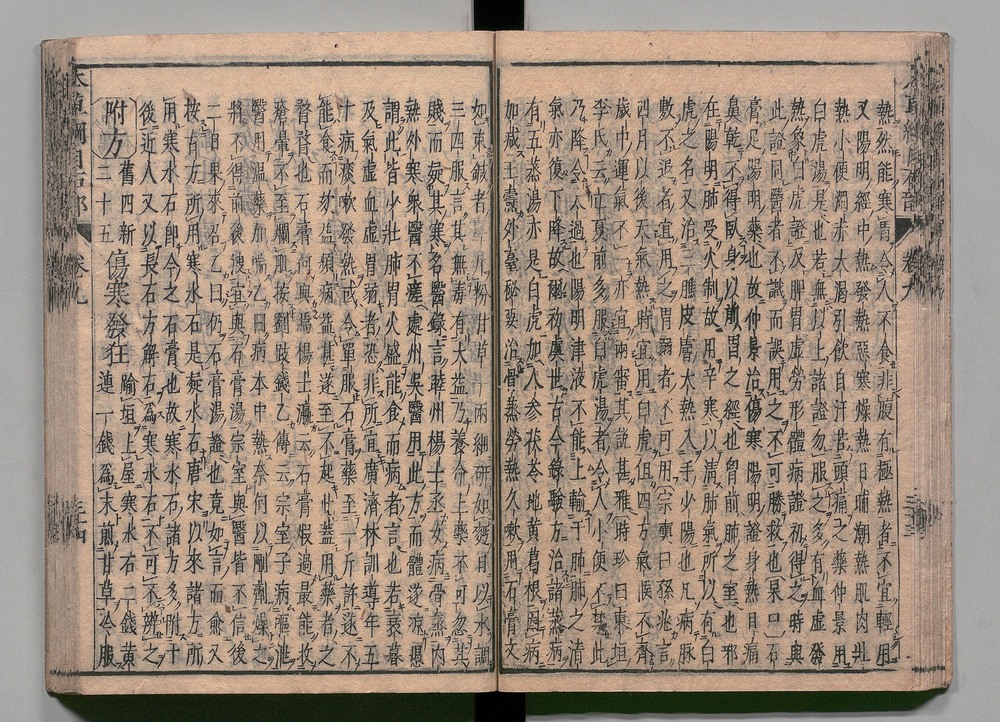 熱然能寒胃令人不食非腹有極熱者不宜輕用
又陽明經中熱發熱惡寒燥熱日晡潮熱肌肉壯
熱小便濁赤大渴引飲自汗苦頭痛之藥仲景用
白虎湯是也若無以上諸證勿服之多有血虛發
熱象白虎證及脾胃虛勞形體病證初得之時與
此證同醫者不識而誤用之不可勝救也杲曰石
膏足陽明藥也故仲景治傷寒陽明證身熱目痛
鼻乾不得臥身以前胃之經也胸前肺之室也邪
在陽明肺受火制故用辛寒以清肺氣所以有白
虎之名又治三焦皮膚大熱入手少陽也凡病脉
數不退者宜用之胃弱者不可用宗奭曰孫兆言
四月以後天氣熱時宜用白虎但四方氣候不齊
歲中運氣不一亦宜兩審其說甚雅時珍曰東垣
李氏云立夏前多服白虎湯者令人小便不禁此
乃降令太過也陽明津液不能上輸于肺肺之清
氣亦復下降故爾初虞世古今錄驗方治諸蒸病
有五蒸湯亦是白虎加人參茯苓地黃葛根因病
加減王燾外臺秘要治骨蒸勞熱久嗽用石膏文
如束鍼者一斤粉甘草一兩細研如麪日以水調
三四服言其無毒有大益乃養命上藥不可忽其
賤而疑其寒名醫錄言睦州楊士丞女病骨蒸內
熱外寒衆醫不瘥處州吳醫用此方而體遂凉愚
謂此皆少壯肺胃火盛能食而病者言也若衰暮
及氣虛血虛胃弱者恐非所宜廣濟林訓導年五
十病痰嗽發熱或令單服石膏藥至一斤許遂不
能食而欬益頻病益甚遂至不起此蓋用藥者之
瞀瞀也石膏何與焉楊士瀛云石膏煅過最能收
瘡暈不至爛肌按劉跂錢乙傳云宗室子病嘔泄
醫用溫藥加喘乙曰病本中熱柰何以剛劑燥之
將不得前後溲宜與石膏湯宗室與醫皆不信後
二日果來召乙曰仍石膏湯證也竟如言而愈又
按古方所用寒水石是凝水石唐宋以來諸方所
用寒水石即今之石膏也故寒水石諸方多附于
後近人又以長石方解石爲寒水石不可不辨之
附方 舊四新二十五 傷寒發狂 踰垣上屋寒水石二錢黃連一錢爲末煎甘草冷服
卷九